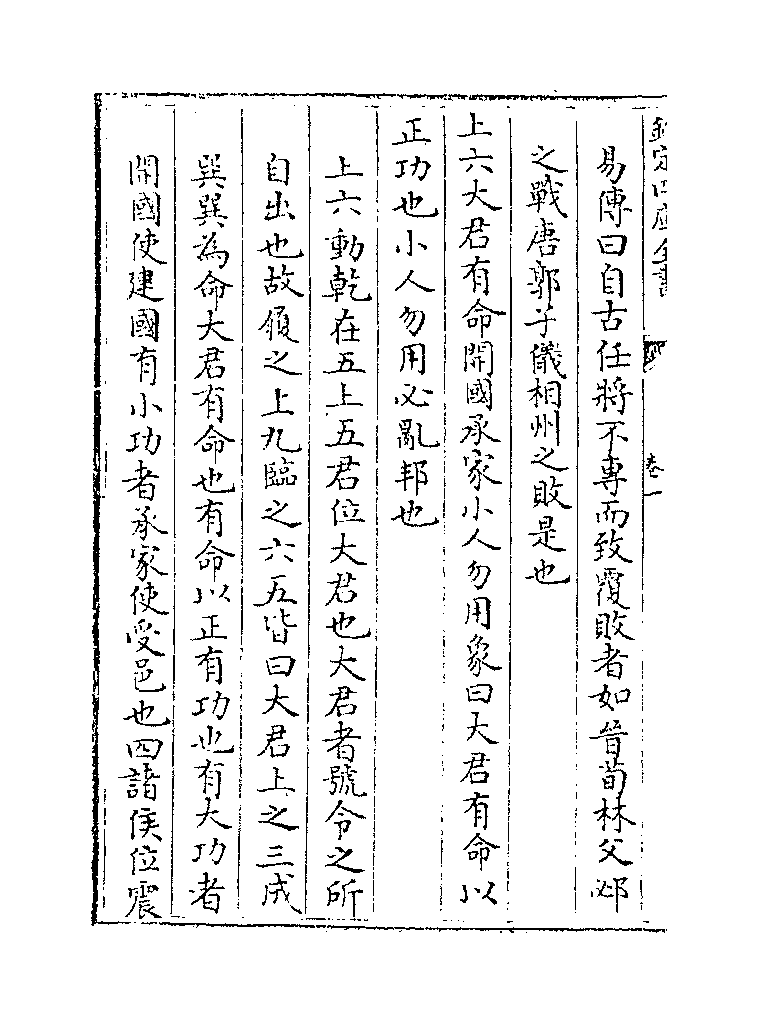 欽定四庫全書　卷一
易傳曰自古任將不專而致覆敗者如晉荀林父邲
之戰唐郭子儀相州之敗是也
上六大君有命開國承家小人勿用象曰大君有命以
正功也小人勿用必亂邦也
上六動乾在五上五君位大君也大君者號令之所
自出也故履之上九臨之六五皆曰大君上之三成
巽巽為命大君有命也有命以正有功也有大功者
開國使建國有小功者承家使受邑也四諸侯位震